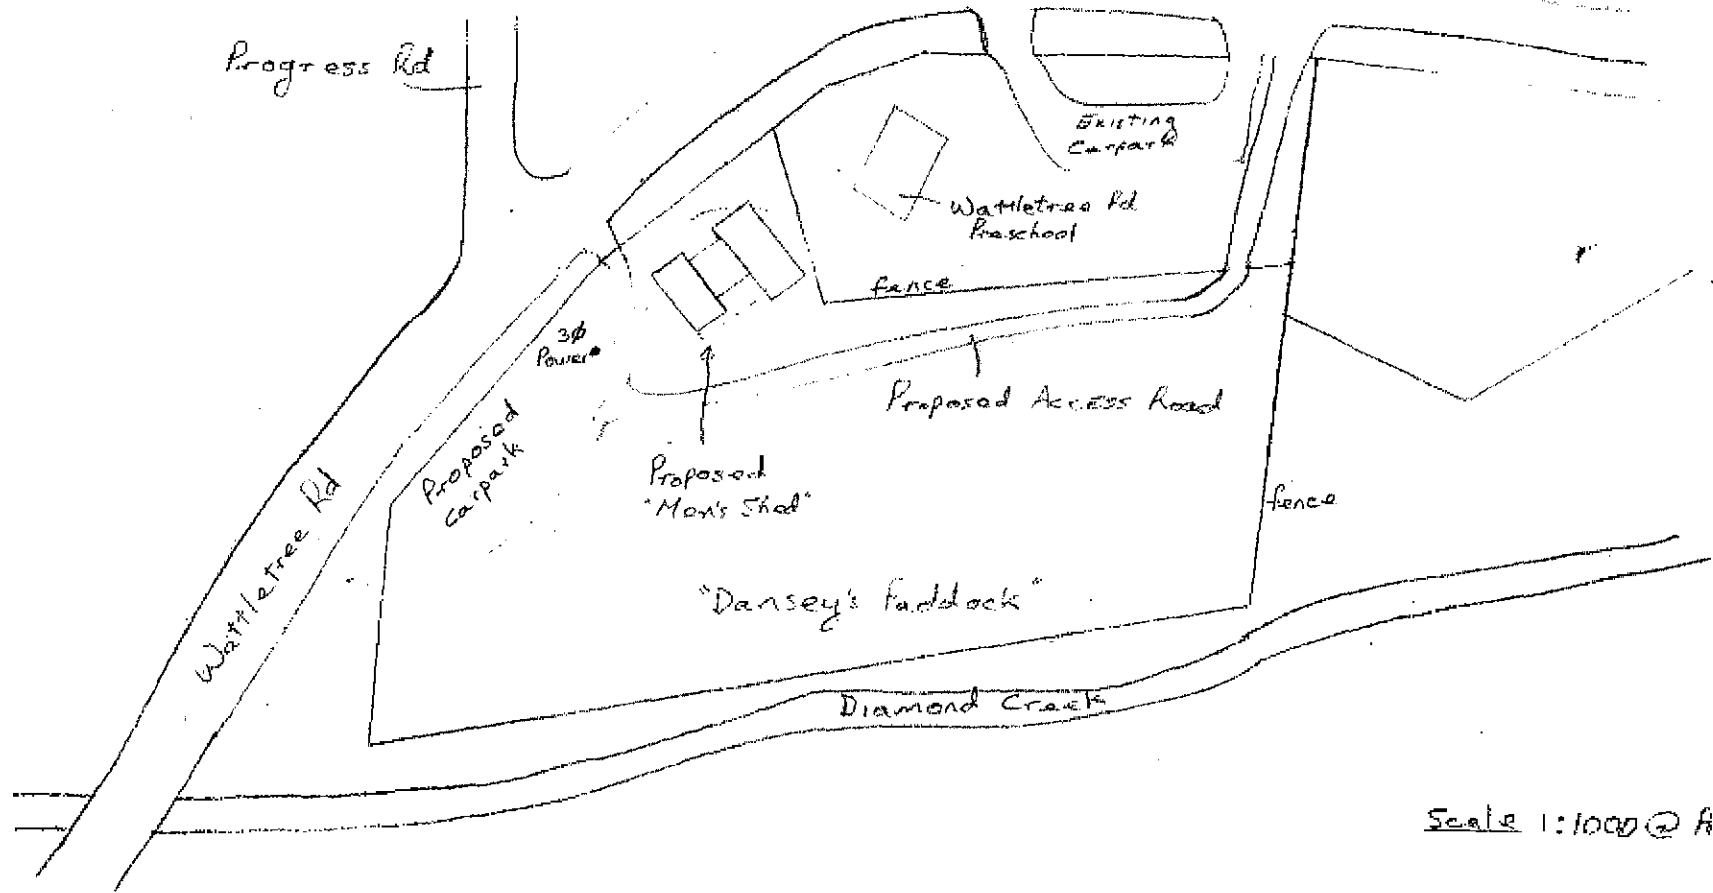 Progress Rd
Existing
Carpark
Wattletree Rd
Preschool
fence
3ϕ
Power
Proposed Access Road
Proposed
carpark
Proposed
"Men's Shed"
Wattletree Rd
fence
"Dansey's Paddock"
Diamond Creek
Scale 1:1000 @